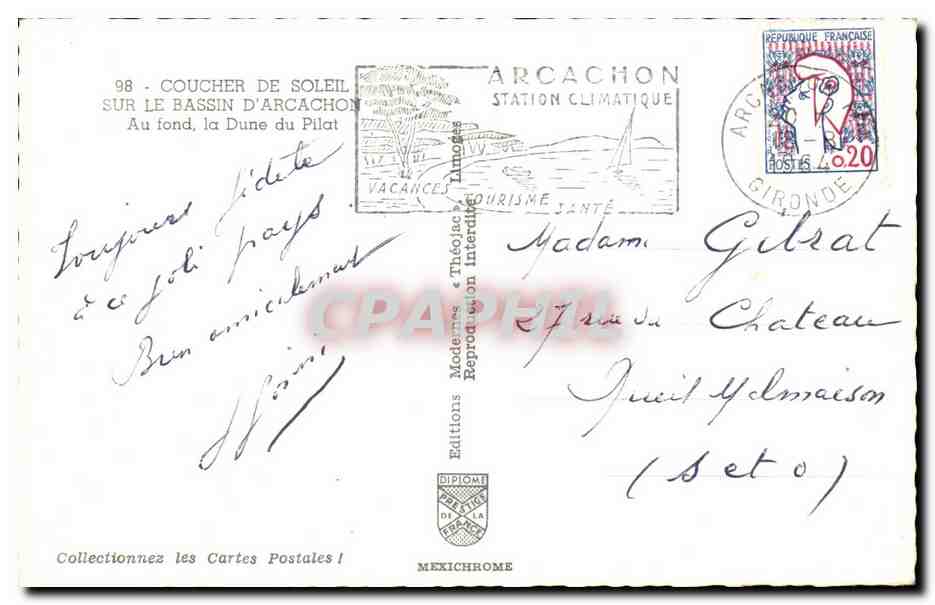 98 - COUCHER DE SOLEIL
SUR LE BASSIN D'ARCACHON
Au fond, la Dune du Pilat
Toujours fidèle
à ce joli pays
Bien amicalement
Collectionnez les Cartes Postales !
ARCACHON
STATION CLIMATIQUE
VACANCES
TOURISME
SANTÉ
Editions Modernes « Théojac », Limoges
Reproduction Interdite
DIPLOME
PRESTIGE
DE LA
FRANCE
MEXICHROME
CPAPHIL
RÉPUBLIQUE FRANÇAISE
POSTES 0,20
GIRONDE
Madame Gibrat
27 rue du Chateau
Rueil Malmaison
(S et O)